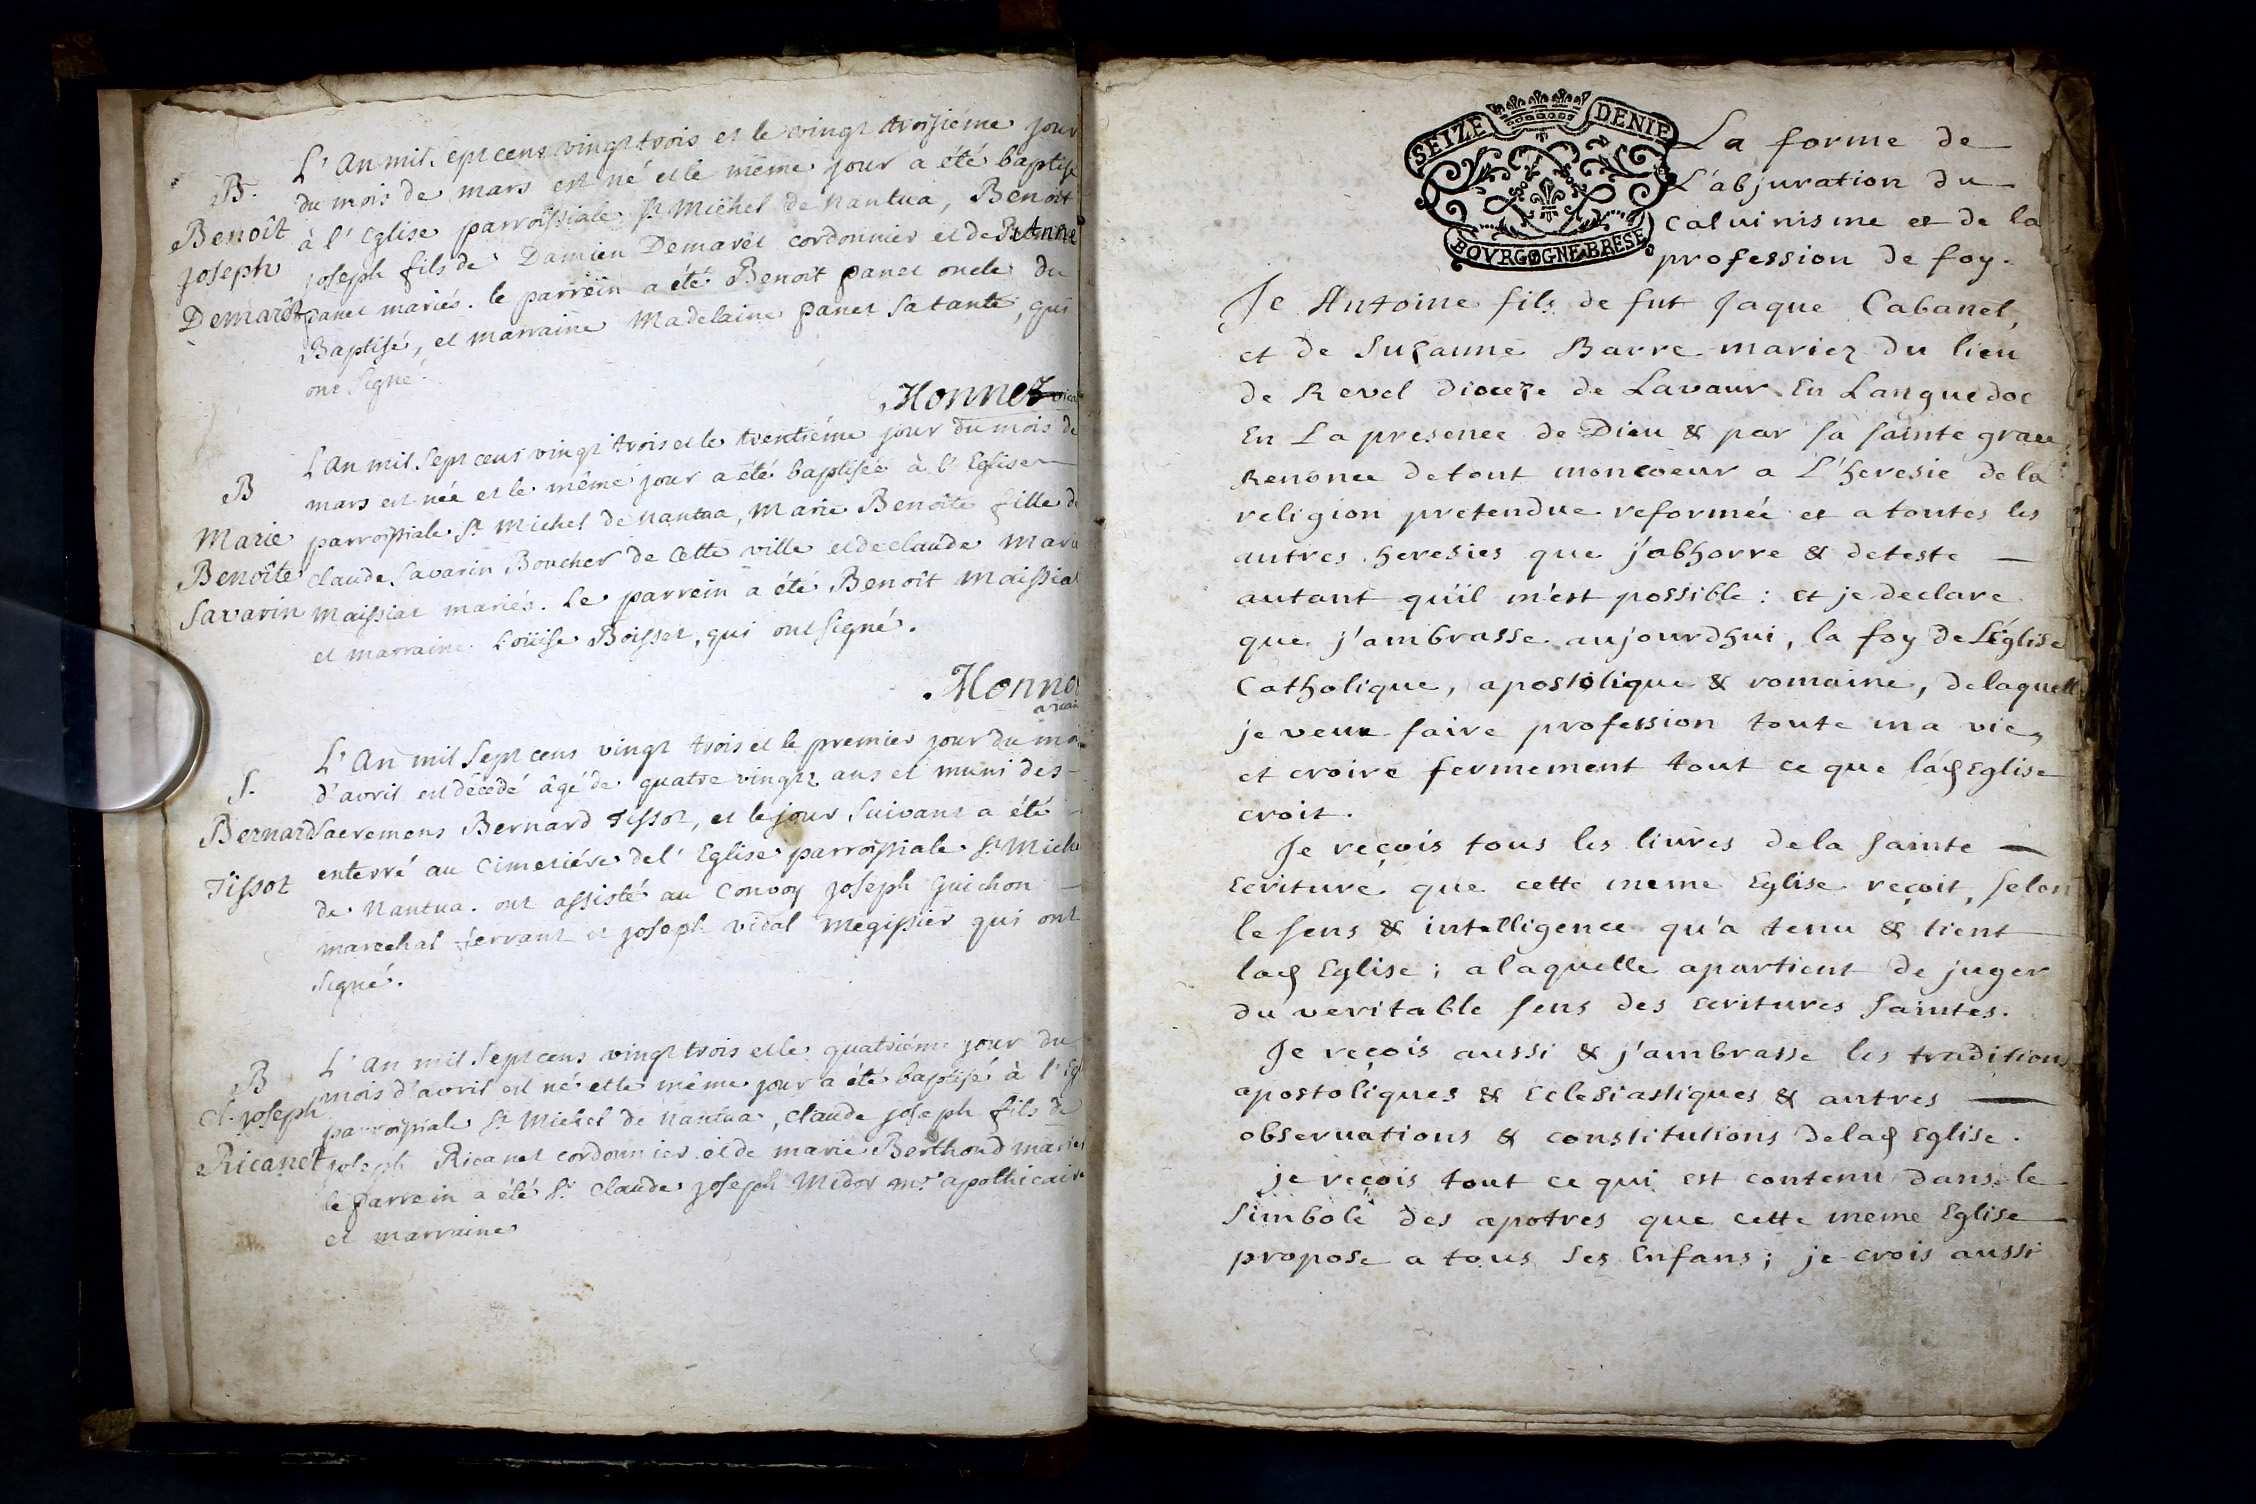 B.
Benoît
Joseph
Demarêt
L'An mil sept cens vingt trois et le vingt troisiéme jour
du mois de mars est né et le même jour a été baptisé
à l'Eglise parroissiale St Michel de Nantua, Benoît
joseph fils de Damien Demaret cordonnier et de Anne
panet mariés. le parrein a été Benoît panet oncle du
Baptisé, et marraine Madelaine panet sa tante, qui
ont signé.
Monnet vicai
B
Marie
Benoîte
Savarin
L'An mil sept cens vingt trois et le trentiéme jour du mois de
mars est née et le même jour a été baptisée à l'Eglise
parroissiale St Michel de Nantua, Marie Benoîte fille de
Claude Savarin Boucher de cette ville et de claude Marie
Maissiat mariés. Le parrein a été Benoît Maissiat
et marraine Loüise Boisset, qui ont signé.
Monne
vicair
S.
Bernard
Tissot
L'An mil sept cens vingt trois et le premier jour du moi
d'avril est décédé âgé de quatre vingtz ans et muni des
Sacremens Bernard Tissot, et le jour suivant a été
enterré au cimetiére de l'Eglise parroissiale St Miche
de Nantua. ont assisté au convoy joseph Guichon
marechal ferrant et joseph vidal megissier qui ont
signé.
B
Cl. joseph
Ricanet
L'An mil sept cens vingt trois et le quatriéme jour du
mois d'avril est né et le même jour a été baptisé à l'Egl
parroissiale St Michel de Nantua, claude joseph fils de
joseph Ricanet cordonnier et de marie Berthoud mariés
le parrein a été Sr claude joseph Midor mr apothicaire
et marraine
SEIZE DENIE
BOVRGOGNE BRESE
La forme de
L'abjuration du
calvinisme et de la
profession de foy.
Je Antoine fils de fut Jaque Cabanel,
et de Suzanne Barre mariez du lieu
de Revel diocèze de Lavaur En Languedoc
En La presence de Dieu & par sa sainte grace
Renonce de tout mon coeur a L'heresie de la
religion pretendue reformée et a toutes les
autres heresies que j'abhorre & deteste —
autant qu'il m'est possible : et je declare
que j'ambrasse aujourdhui, la foy de L'église
Catholique, apostolique & romaine, de laquelle
je veux faire profession toute ma vie,
et croire fermement tout ce que lad Eglise
croit.
Je reçois tous les livres de la sainte —
Ecriture que cette meme Eglise reçoit, selon
le sens & intelligence qu'a tenu & tient
lad Eglise ; a laquelle apartient de juger
du veritable sens des ecritures saintes.
Je reçois aussi & j'ambrasse les traditions
apostoliques & Eclesiastiques & autres —
observations & constitutions de lad Eglise.
je reçois tout ce qui est contenu dans le
Simbole des apotres que cette meme Eglise
propose a tous ses Enfans ; je crois aussi